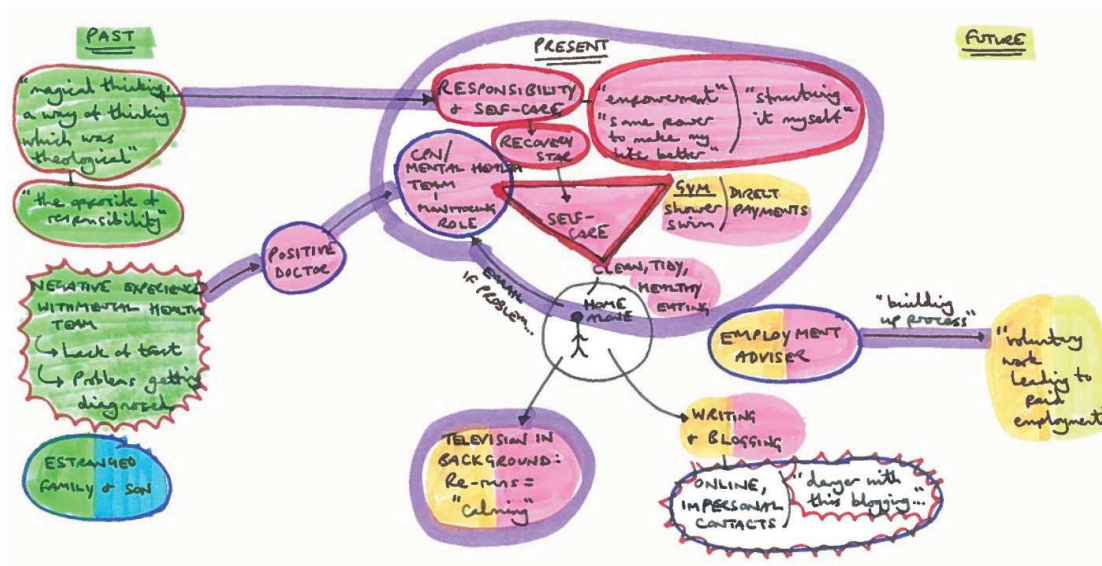 PAST
PRESENT
FUTURE
"magical thinking,
a way of thinking
which was
theological"
"the opposite of
responsibility"
NEGATIVE EXPERIENCE
WITH MENTAL HEALTH
TEAM
Lack of trust
Problems getting
diagnosed
ESTRANGED
FAMILY & SON
POSITIVE
DOCTOR
RESPONSIBILITY
& SELF-CARE
"empowerment"
"some power
to make my
life better"
"structuring
it myself"
RECOVERY
STAR
CPN/
MENTAL HEALTH
TEAM
MONITORING
ROLE
SELF-
CARE
GYM
shower
swim
DIRECT
PAYMENTS
CLEAN, TIDY,
HEALTHY
EATING
EMAIL
IF PROBLEM...
HOME
ALONE
EMPLOYMENT
ADVISER
"building
up process"
"voluntary
work
leading to
paid
employment"
TELEVISION IN
BACKGROUND:
Re-runs =
"calming"
WRITING
& BLOGGING
ONLINE,
IMPERSONAL
CONTACTS
"danger with
this blogging...